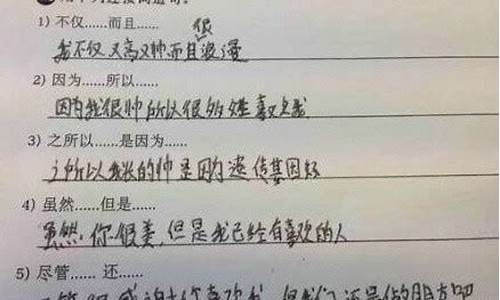 1) 不仅......而且......
很
我不仅又高又帅而且浪漫
2) 因为......所以......
因为我很帅所以很多姓喜欢我
3) 之所以......是因为......
之所以我长的帅是因为遗传基因好
4) 虽然......但是......
虽然你很美,但是我已经有喜欢的人
5) 尽管...... 还......
感谢你喜欢我,但我们还是做朋友吧